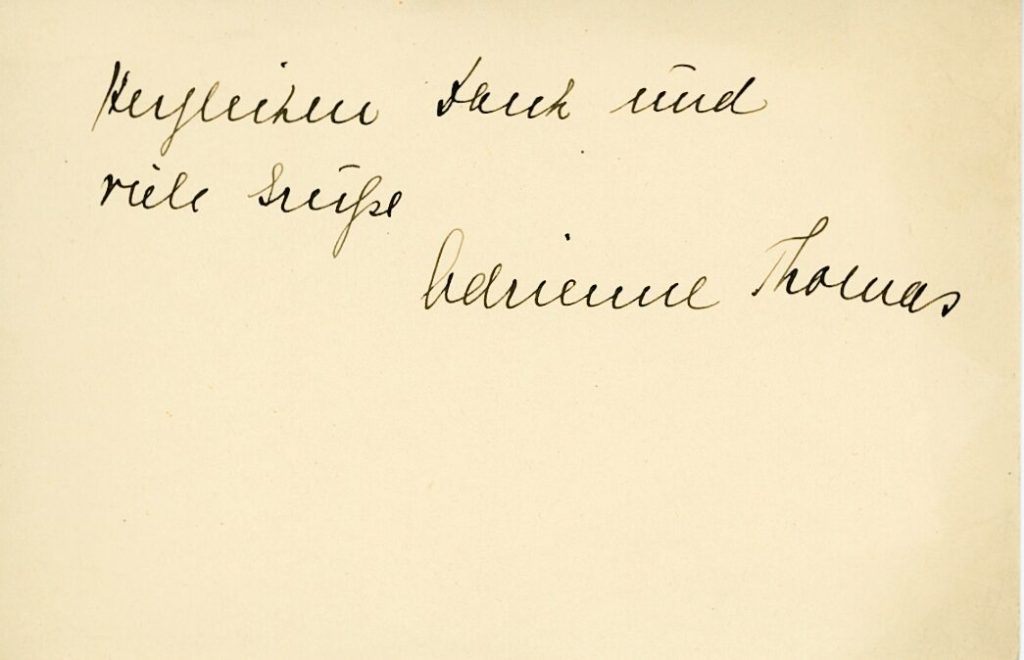 Herzlichen Dank und
viele Grüße
Adrienne Thomas